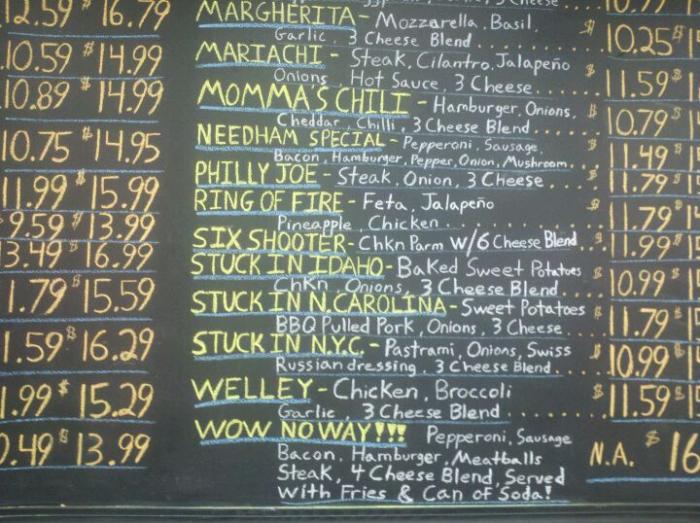 12.59 $16.79
MARGHERITA - Mozzarella. Basil.
Garlic. 3 Cheese Blend.... $10.25 $
10.59 $14.99
MARIACHI - Steak, Cilantro, Jalapeño
Onions Hot Sauce, 3 Cheese.... $11.59 $
10.89 $14.99
MOMMA'S CHILI - Hamburger, Onions,
Cheddar, Chilli, 3 Cheese Blend.... $10.79 $
10.75 $14.95
NEEDHAM SPECIAL - Pepperoni, Sausage,
Bacon, Hamburger, Pepper, Onion, Mushroom. $11.49 $
11.99 $15.99
PHILLY JOE - Steak, Onion, 3 Cheese.... $11.79 $
9.59 $13.99
RING OF FIRE - Feta, Jalapeño
Pineapple, Chicken.... $11.79 $
13.49 $16.99
SIX SHOOTER - Chkn Parm w/6 Cheese Blend.. $11.99 $
1.79 $15.59
STUCK IN IDAHO - Baked Sweet Potatoes
Chkn Onions, 3 Cheese Blend.... $10.99 $
STUCK IN N.CAROLINA - Sweet Potatoes
BBQ Pulled Pork, Onions, 3 Cheese $11.79 $
1.59 $16.29
STUCK IN N.Y.C. - Pastrami, Onions, Swiss
Russian dressing, 3 Cheese Blend.... $10.99 $
1.99 $15.29
WELLEY - Chicken, Broccoli
Garlic, 3 Cheese Blend.... $11.59 $
0.49 $13.99
WOW NO WAY!!! Pepperoni, Sausage
Bacon, Hamburger, Meatballs N.A. $16
Steak, 4 Cheese Blend, Served
with Fries & Can of Soda!